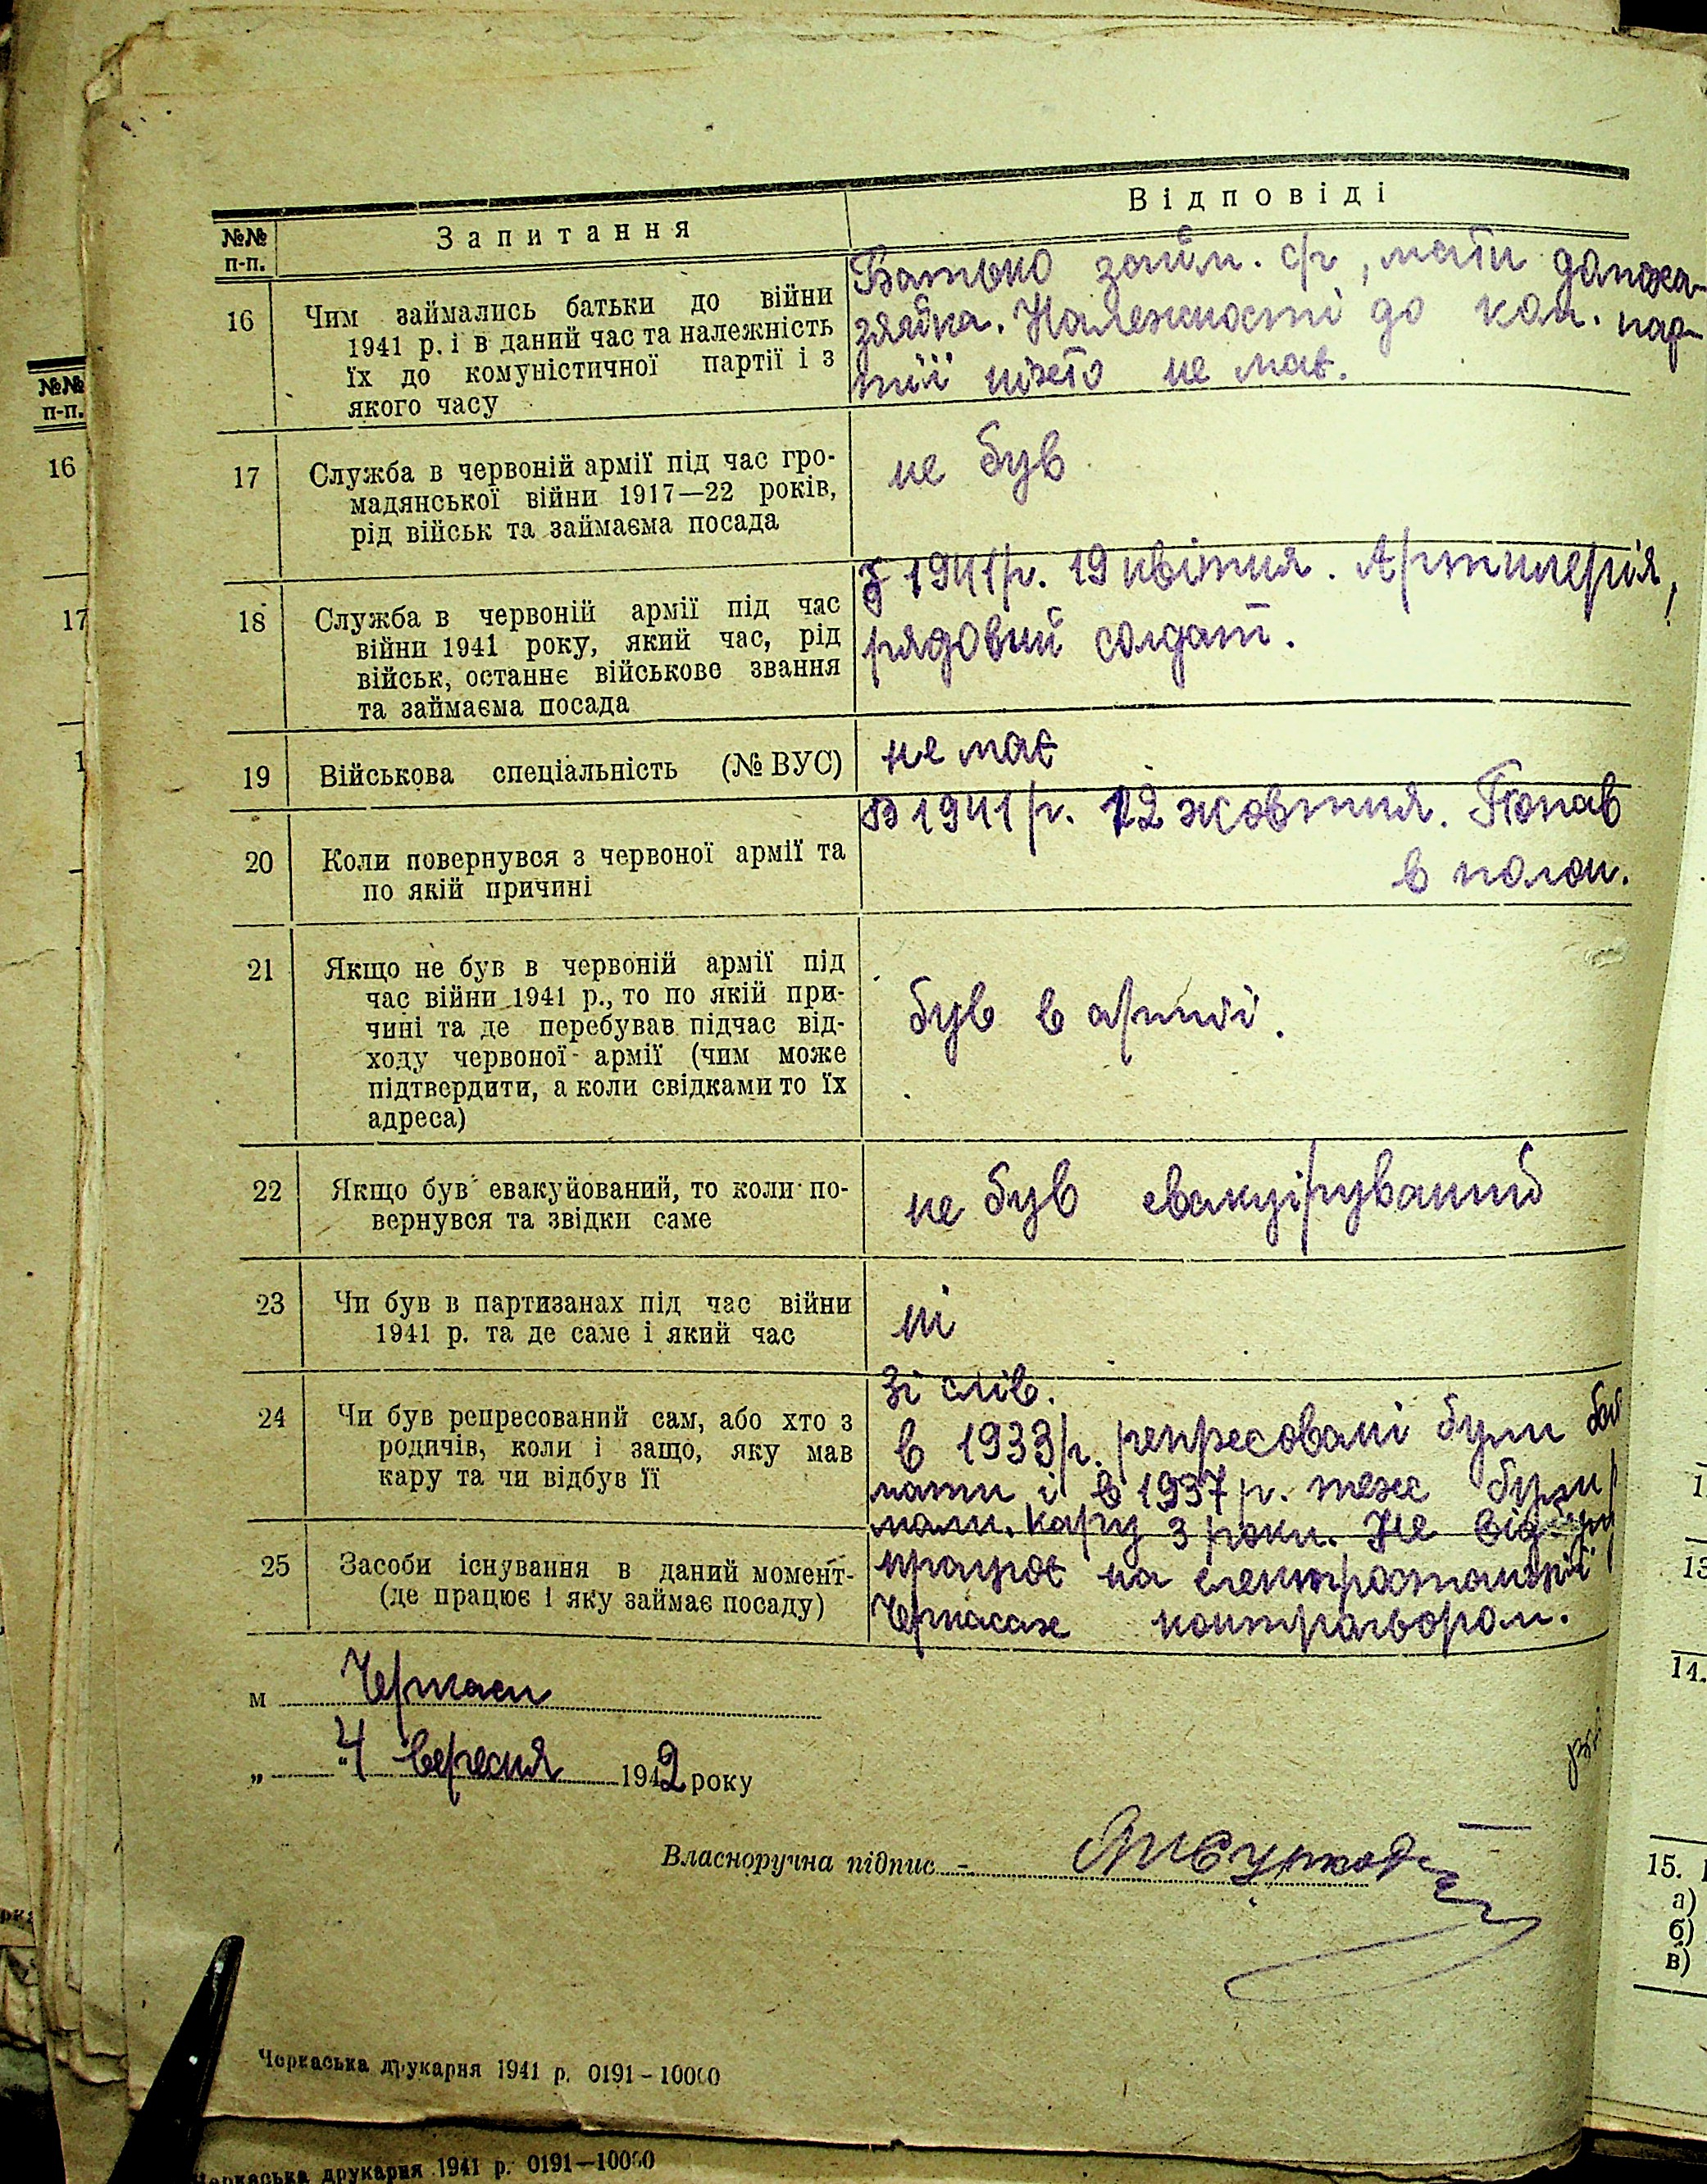 №№ п-п.
Запитання
Відповіді
16
Чим займались батьки до війни
1941 р. і в даний час та належність
їх до комуністичної партії і з
якого часу
Батько займ. с/г, мати домоха-
зяйка. Належності до ком. пар-
тії ніхто не має.
17
Служба в червоній армії під час гро-
мадянської війни 1917—22 років,
рід військ та займаєма посада
не був
18
Служба в червоній армії під час
війни 1941 року, який час, рід
військ, останнє військове звання
та займаєма посада
З 1941 р. 19 квітня. Артилерія,
рядовий солдат.
19
Військова спеціальність (№ ВУС)
не має
20
Коли повернувся з червоної армії та
по якій причині
В 1941 р. 12 жовтня. Попав
в полон.
21
Якщо не був в червоній армії під
час війни 1941 р., то по якій при-
чині та де перебував підчас від-
ходу червоної армії (чим може
підтвердити, а коли свідками то їх
адреса)
був в армії.
22
Якщо був евакуйований, то коли по-
вернувся та звідки саме
не був евакуіруваний
23
Чи був в партизанах під час війни
1941 р. та де саме і який час
ні
24
Чи був репресований сам, або хто з
родичів, коли і защо, яку мав
кару та чи відбув її
Зі слів.
в 1933 р. репресовані були
мати і в 1937 р. теж були
мали. кару 3 роки. Не
25
Засоби існування в даний момент-
(де працює і яку займає посаду)
працює на електростанції
Черкасах контрольором.
м Черкаси
„ 4 “ вересня 1942 року
Власноручна підпис
Черкаська друкарня 1941 р. 0191—10000
№№
п-п.
16
17
1
1
13
14.
15.
а)
б)
в)
Черкаська друкарня 1941 р. 0191—10000